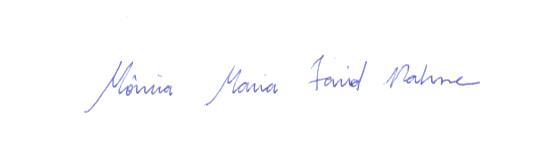 Mônica Maria Farid Rahme